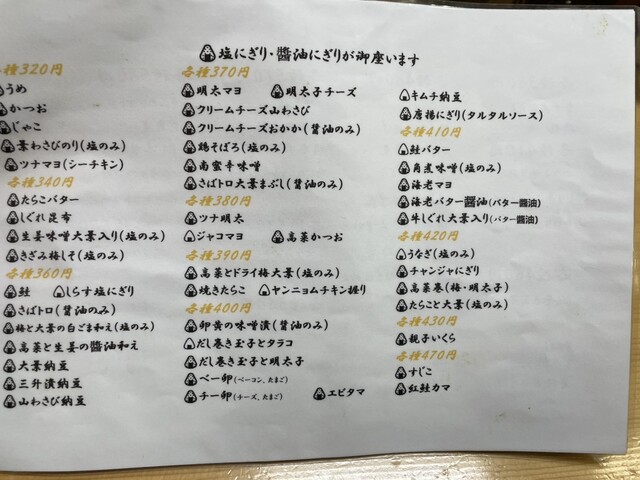 塩にぎり・醬油にぎりが御座います
各種320円
うめ
かつお
じゃこ
葉わさびのり(塩のみ)
ツナマヨ(シーチキン)
各種340円
たらこバター
しぐれ昆布
生姜味噌大葉入り(塩のみ)
きざみ梅しそ(塩のみ)
各種360円
鮭 しらす塩にぎり
さばトロ(醤油のみ)
梅と大葉の白ごま和え(塩のみ)
高菜と生姜の醬油和え
大葉納豆
三升漬納豆
山わさび納豆
各種370円
明太マヨ 明太子チーズ
クリームチーズ山わさび
クリームチーズおかか(醤油のみ)
鶏そぼろ(塩のみ)
南蛮辛味噌
さばトロ大葉まぶし(醤油のみ)
各種380円
ツナ明太
ジャコマヨ 高菜かつお
各種390円
高菜とドライ梅大葉(塩のみ)
焼きたらこ ヤンニョムチキン握り
各種400円
卵黄の味噌漬(醤油のみ)
だし巻き玉子とタラコ
だし巻き玉子と明太子
ベー卵(ベーコン、たまご)
チー卵(チーズ、たまご) エビタマ
キムチ納豆
唐揚にぎり(タルタルソース)
各種410円
鮭バター
角煮味噌(塩のみ)
海老マヨ
海老バター醬油(バター醬油)
牛しぐれ大葉入り(バター醬油)
各種420円
うなぎ(塩のみ)
チャンジャにぎり
高菜巻(梅・明太子)
たらこと大葉(塩のみ)
各種430円
親子いくら
各種470円
すじこ
紅鮭カマ